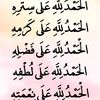 الْحَمْدُ لِلَّهِ عَلَى سِتْرِهِ
الْحَمْدُ لِلَّهِ عَلَى كَرَمِهِ
الْحَمْدُ لِلَّهِ عَلَى فَضْلِهِ
الْحَمْدُ لِلَّهِ عَلَى لُطْفِهِ
الْحَمْدُ لِلَّهِ عَلَى نِعْمَتِهِ